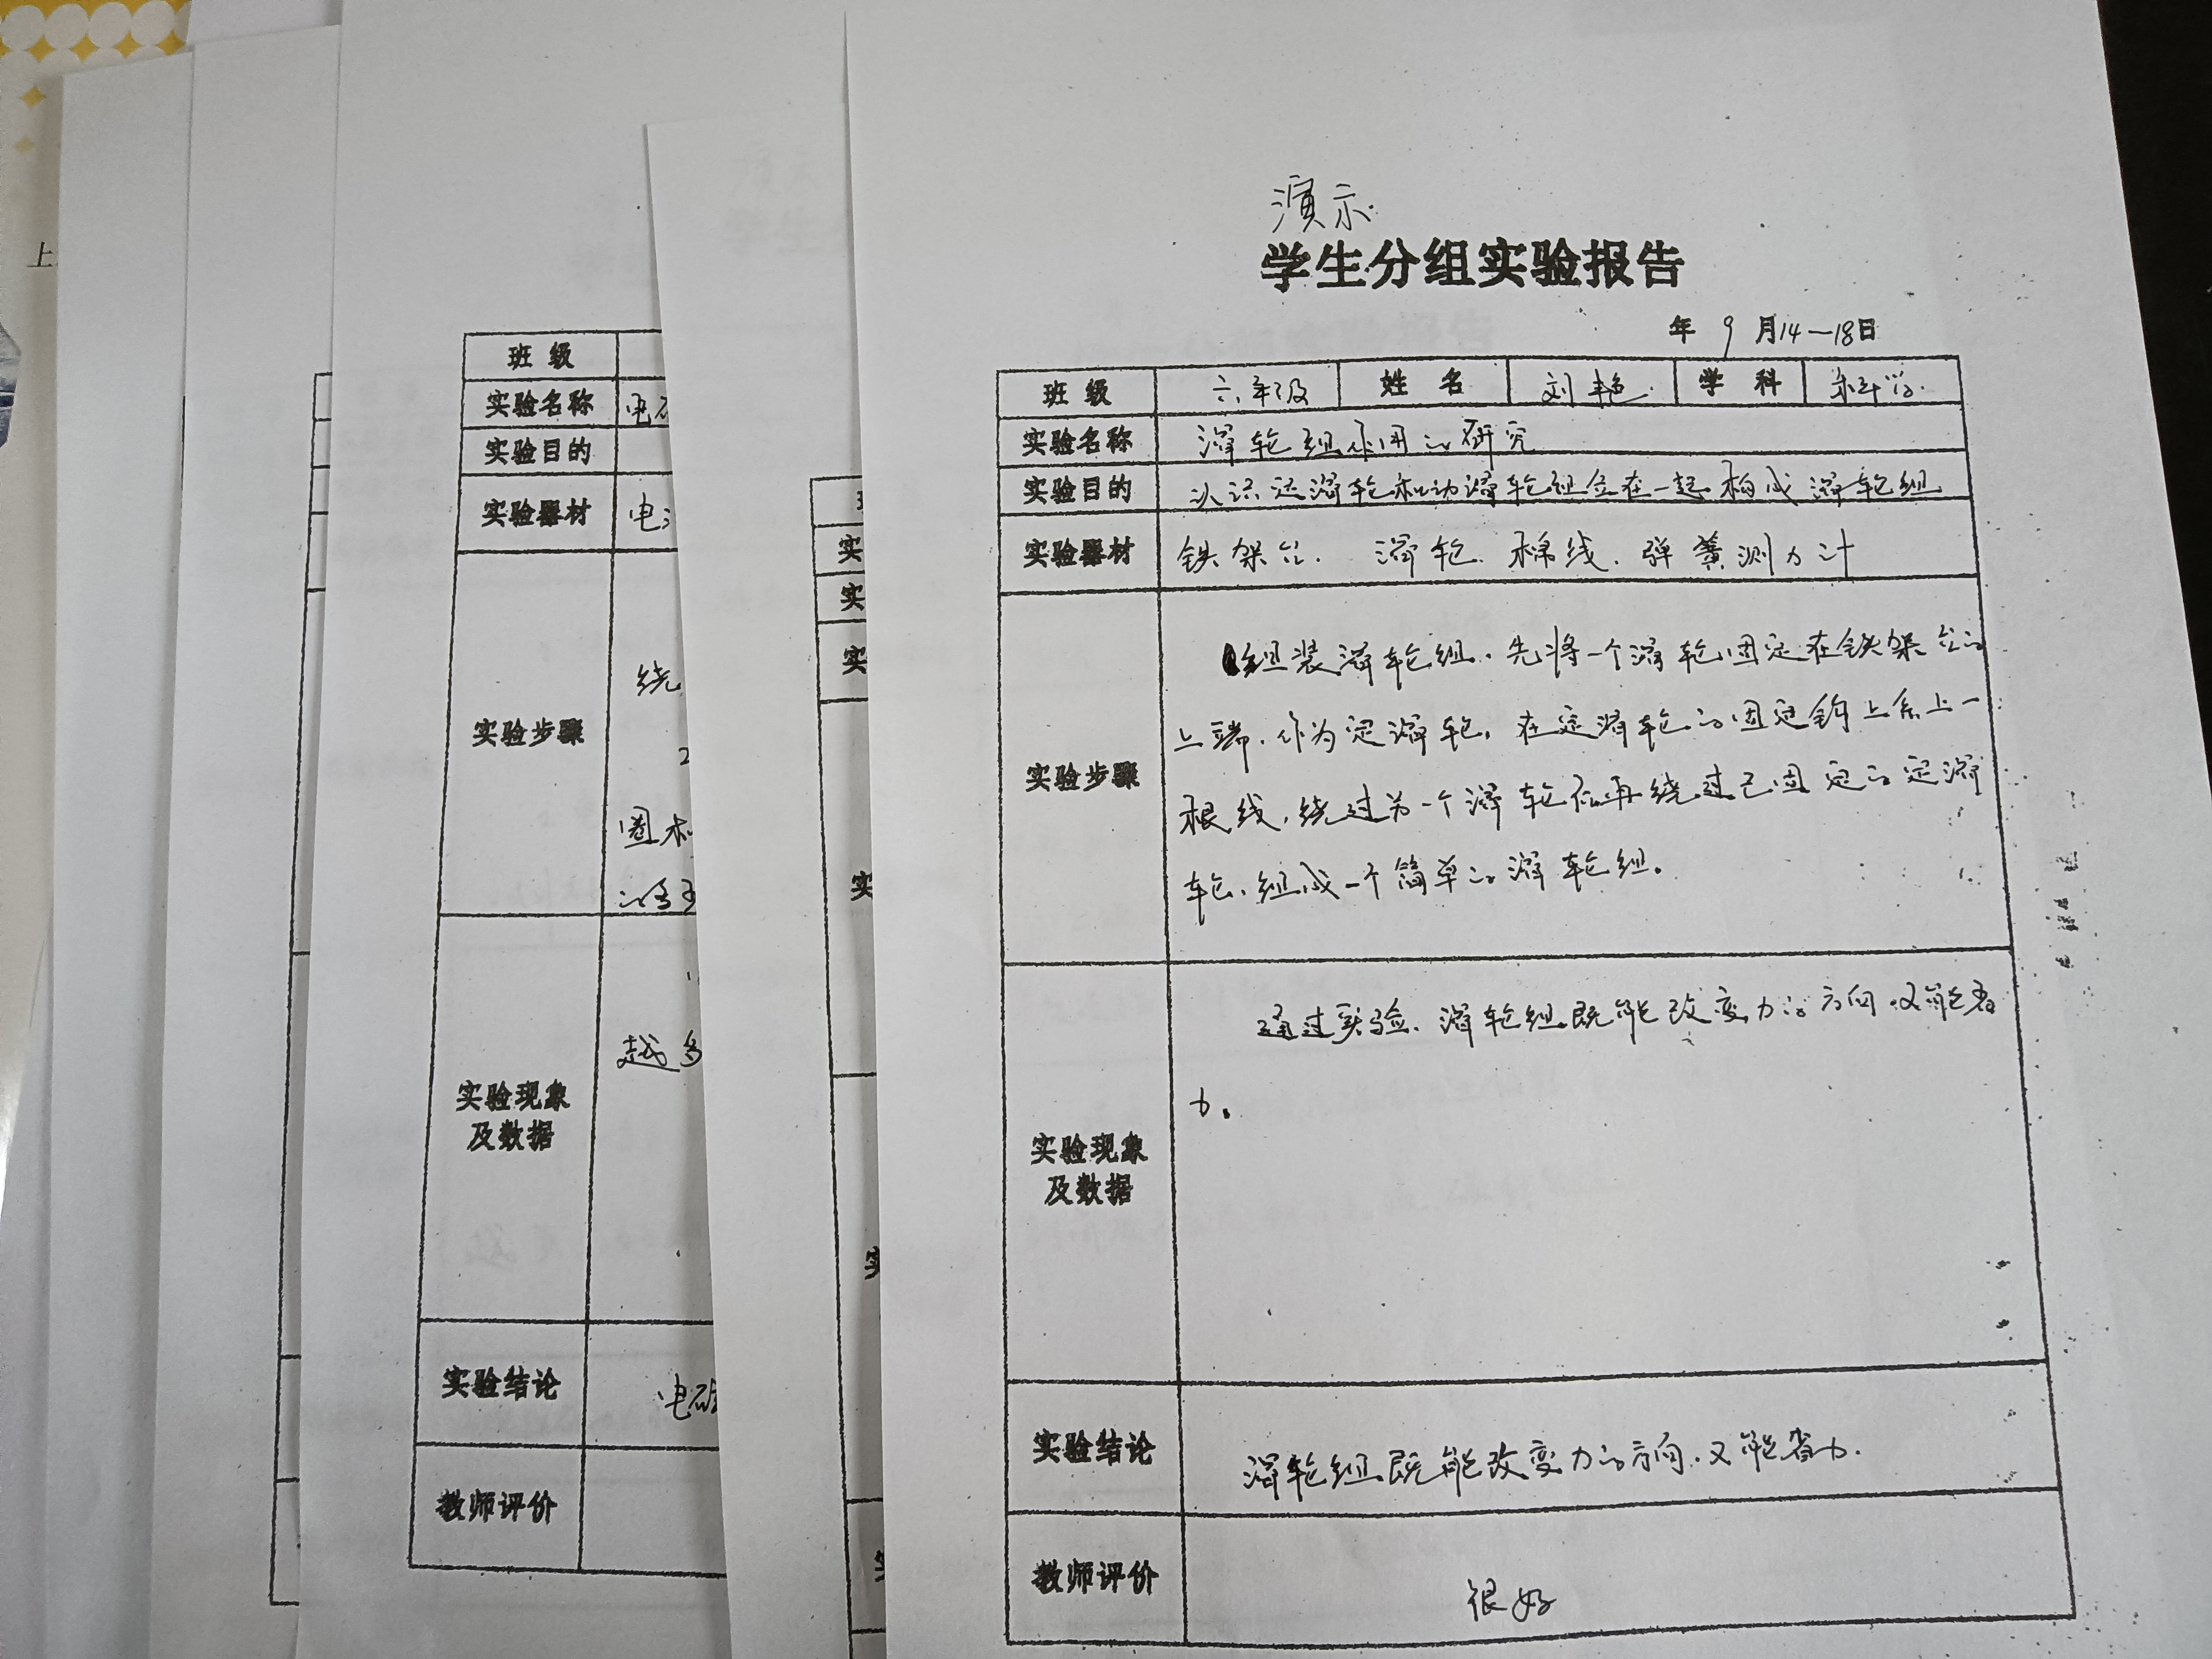 上
班 级
实验名称 电
实验目的
实验器材 电
实验步骤
绕
2
圈
实验现象
及数据
越多
实验结论
电磁
教师评价
实
实
实
实
实
实
演示
学生分组实验报告
年 9 月14—18日
班 级 六年级 姓 名 刘艳 学 科 科学
实验名称 滑轮组作用的研究
实验目的 认识定滑轮和动滑轮组合在一起构成滑轮组
实验器材 铁架台. 滑轮. 棉线. 弹簧测力计
实验步骤
组装滑轮组. 先将一个滑轮固定在铁架台的
上端. 作为定滑轮, 在定滑轮的固定钩上系上一
根线, 绕过另一个滑轮后再绕过已固定的定滑
轮. 组成一个简单的滑轮组.
实验现象
及数据
通过实验. 滑轮组既能改变力的方向. 又能省
力.
实验结论
滑轮组既能改变力的方向. 又能省力.
教师评价
很好